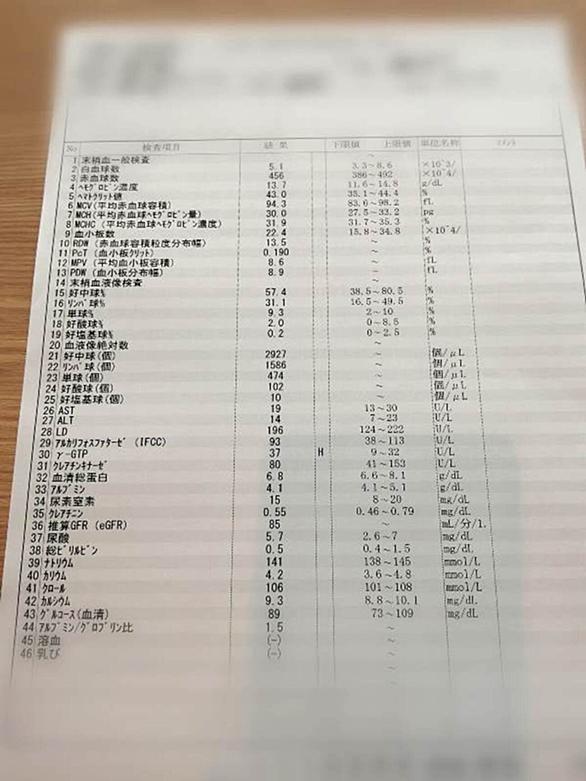 No 検査項目 結果 下限値 上限値 単位名称 コメント
1 末梢血一般検査 ~
2 白血球数 5.1 3.3~8.6 ×10^3/
3 赤血球数 456 386~492 ×10^4/
4 ヘモグロビン濃度 13.7 11.6~14.8 g/dL
5 ヘマトクリット値 43.0 35.1~44.4 %
6 MCV(平均赤血球容積) 94.3 83.6~98.2 fL
7 MCH(平均赤血球ヘモグロビン量) 30.0 27.5~33.2 pg
8 MCHC (平均赤血球ヘモグロビン濃度) 31.9 31.7~35.3 %
9 血小板数 22.4 15.8~34.8 ×10^4/
10 RDW (赤血球容積粒度分布幅) 13.5 ~ %
11 PcT (血小板クリット) 0.190 ~ %
12 MPV (平均血小板容積) 8.6 ~ fL
13 PDW (血小板分布幅) 8.9 ~ fL
14 末梢血液像検査 ~
15 好中球% 57.4 38.5~80.5 %
16 リンパ球% 31.1 16.5~49.5 %
17 単球% 9.3 2~10 %
18 好酸球% 2.0 0~8.5 %
19 好塩基球% 0.2 0~2.5 %
20 血液像絶対数 ~
21 好中球(個) 2927 ~ 個/μL
22 リンパ球(個) 1586 ~ 個/μL
23 単球(個) 474 ~ 個/μL
24 好酸球(個) 102 ~ 個/μL
25 好塩基球(個) 10 ~ 個/μL
26 AST 19 13~30 U/L
27 ALT 14 7~23 U/L
28 LD 196 124~222 U/L
29 アルカリフォスファターゼ (IFCC) 93 38~113 U/L
30 γ-GTP 37 H 9~32 U/L
31 クレアチンキナーゼ 80 41~153 U/L
32 血清総蛋白 6.8 6.6~8.1 g/dL
33 アルブミン 4.1 4.1~5.1 g/dL
34 尿素窒素 15 8~20 mg/dL
35 クレアチニン 0.55 0.46~0.79 mg/dL
36 推算GFR (eGFR) 85 ~ mL/分/1.
37 尿酸 5.7 2.6~7 mg/dL
38 総ビリルビン 0.5 0.4~1.5 mg/dL
39 ナトリウム 141 138~145 mmol/L
40 カリウム 4.2 3.6~4.8 mmol/L
41 クロール 106 101~108 mmol/L
42 カルシウム 9.3 8.8~10.1 mg/dL
43 グルコース(血清) 89 73~109 mg/dL
44 アルブミン/グロブリン比 1.5 ~
45 溶血 (-) ~
46 乳び (-) ~